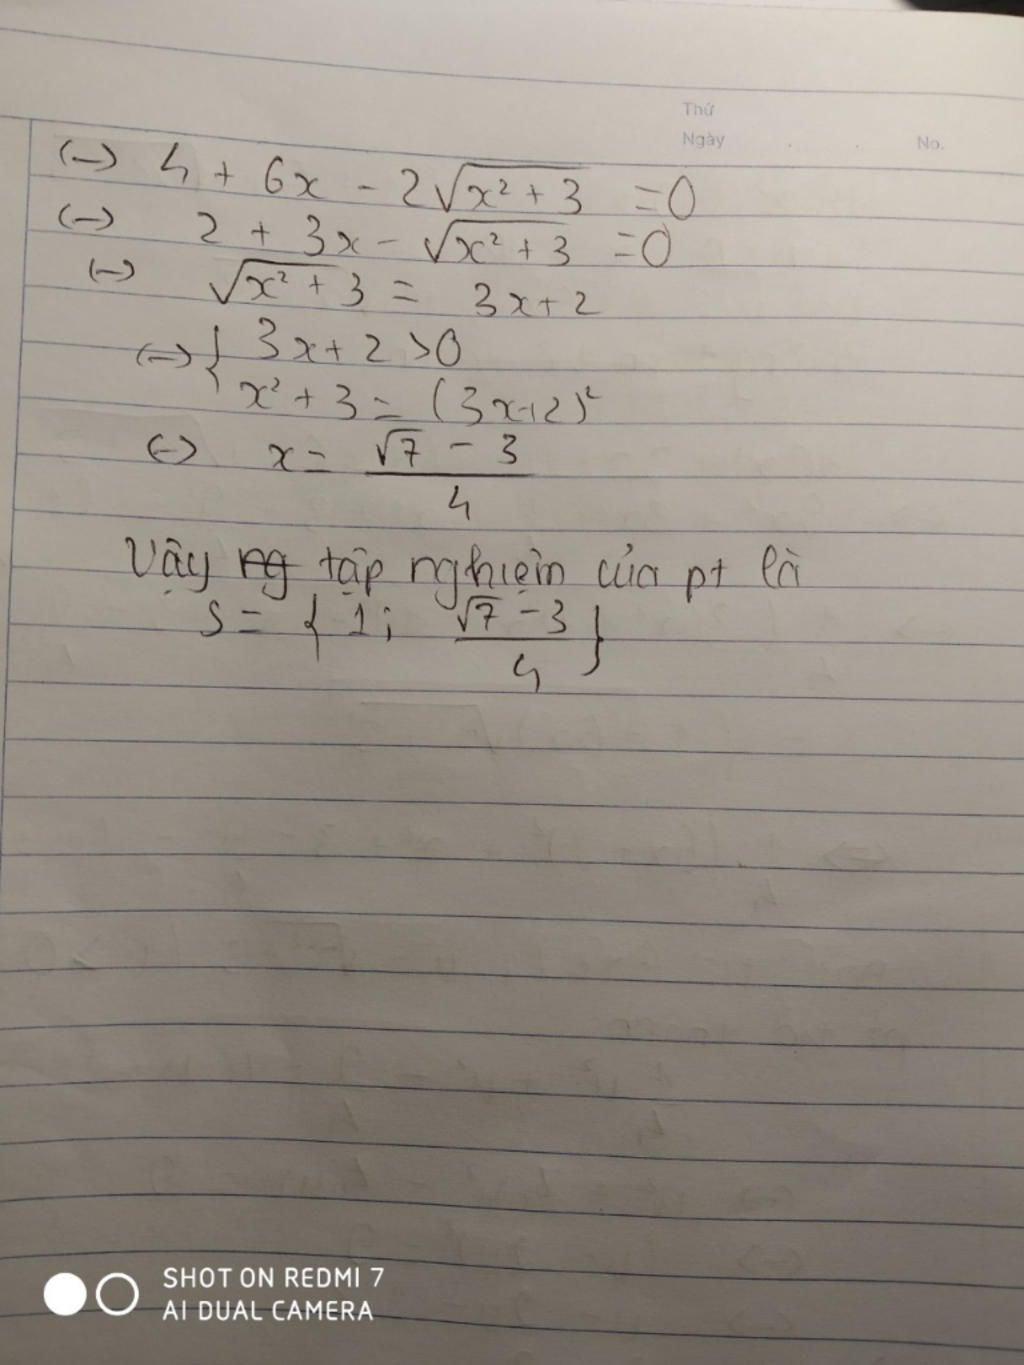 Thứ
Ngày No.
(–) 4 + 6x - 2√(x² + 3) = 0
(–) 2 + 3x - √(x² + 3) = 0
(–) √(x² + 3) = 3x + 2
(–) { 3x + 2 > 0
x² + 3 = (3x+2)²
(–) x = (√7 - 3)/4
Vậy tập nghiệm của pt là
S = { 1; (√7 - 3)/4 }
SHOT ON REDMI 7
AI DUAL CAMERA